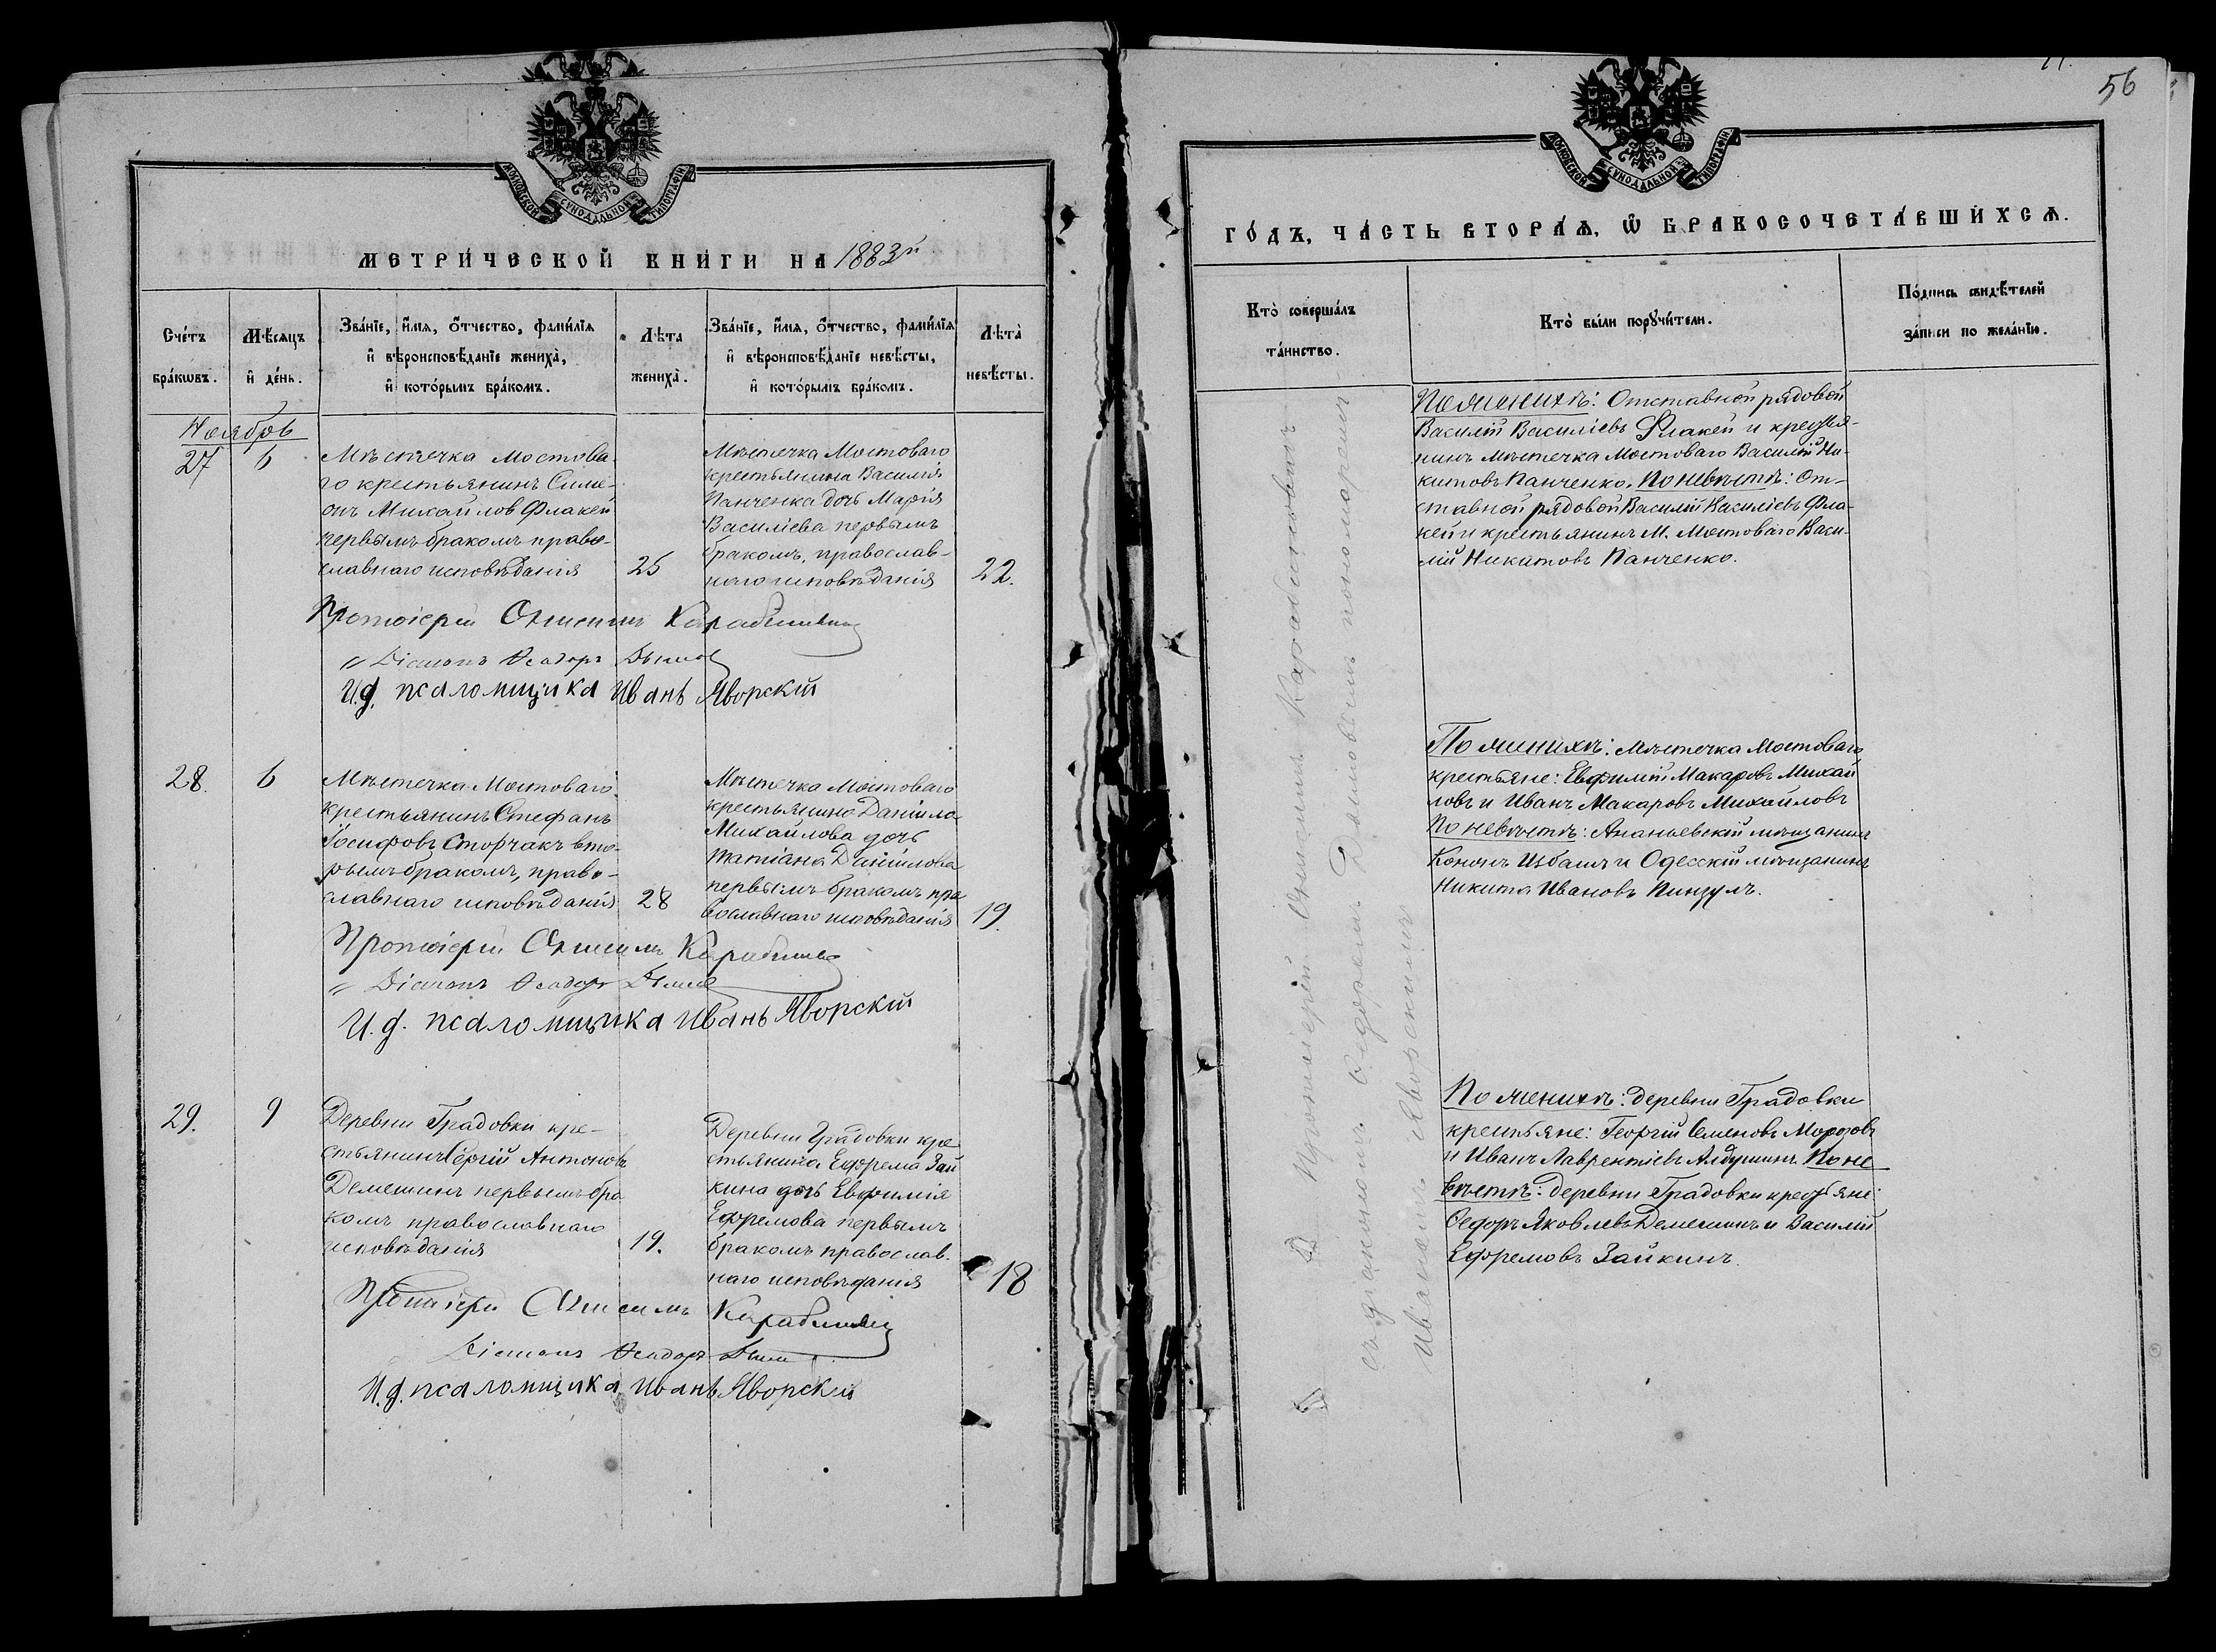 МОСКОВСКОЙ СУНОДАЛЬНОЙ ТИПОГРАФІИ
МЕТРИ́ЧЕСКОЙ КНИ́ГИ НА 1883й
Сче́тъ бра́кѡвъ.
Мѣ́сѧцъ и҆ де́нь.
Зва́нїе, и҆́мѧ, ѻ҆́тчество, фами́лїѧ
и҆ вѣроисповѣ́данїе жениха̀,
и҆ кото́рымъ бра́комъ.
Лѣ́та жениха̀.
Зва́нїе, и҆́мѧ, ѻ҆́тчество, фами́лїѧ
и҆ вѣроисповѣ́данїе невѣ́сты,
и҆ кото́рымъ бра́комъ.
Лѣ́та̀ невѣ́сты.
Ноябрь
27
6
Мѣстечка Мостова-
го крестьянинъ Симе-
онъ Михайловъ Флакей
первымъ бракомъ право-
славнаго исповѣданія
25
Мѣстечка Мостоваго
крестьянина Василія
Панченка дочь Марія
Василіева первымъ
бракомъ, православ-
наго исповѣданія
22.
Протоіерей Онисимъ Карабиневичъ
" Діаконъ Ѳеодоръ Дымов
И.д. псаломщика Иванъ Яворскій
28.
6
Мѣстечка Мостоваго
крестьянинъ Стефанъ
Іосифовъ Сторчакъ вто-
рымъ бракомъ, право-
славнаго исповѣданія
28
Мѣстечка Мостоваго
крестьянина Даніила
Михайлова дочь
Татіана Даніилова
первымъ бракомъ пра
вославнаго исповѣданія
19.
Протоіерей Онисимъ Карабиневичъ
" Діаконъ Ѳеодоръ Дымов
И.д. псаломщика Иванъ Яворскій
29.
9
Деревни Градовки кре-
стьянинъ Сергій Антоновъ
Демешинъ первымъ бра
комъ православнаго
исповѣданія
19.
Деревни Градовки кре
стьянина Ефрема Зай
кина дочь Евфимія
Ефремова первымъ
бракомъ православ-
наго исповѣданія
18
Протоіерей Онисимъ Карабиневичъ
Діаконъ Ѳеодоръ Дымов
И.д. псаломщика Иванъ Яворскій
56
МОСКОВСКОЙ СУНОДАЛЬНОЙ ТИПОГРАФІИ
ГО́ДЪ, ЧА́СТЬ ВТОРА́Ѧ, Ѽ БРАКОСОЧЕТА́ВШИХСѦ.
Кто̀ соверша́лъ
та́инство.
Кто̀ бы́ли порꙋчи́тели.
По́дпись свидѣ́телей
за́писи по жела́нїю.
Протоіерей Онисимъ Карабиневичъ
съ діакономъ Ѳеодоромъ Дымовымъ пономаремъ
Иваномъ Яворскимъ
По женихѣ: Отставной рядовой
Василій Василіевъ Флакей и крестья-
нинъ Мѣстечка Мостоваго Василій Ни-
китовъ Панченко. По невѣстѣ: От-
ставной рядовой Василій Василіевъ Фла-
кей и крестьянинъ М. Мостоваго Васи-
лій Никитовъ Панченко.
По женихѣ: Мѣстечка Мостоваго
крестьяне: Евфимій Макаровъ Михай
ловъ и Иванъ Макаровъ Михайловъ
По невѣстѣ: Ананьевскій мѣщанинъ
Кононъ Избашъ и Одесскій мѣщанинъ
Никита Ивановъ Пинзулъ.
По женихѣ: деревни Градовки
крестьяне: Георгій Семеновъ Морозовъ
и Иванъ Лаврентіевъ Алдушинъ По не
вѣстѣ: деревни Градовки крестьяне:
Ѳедоръ Яковлевъ Демешинъ и Василій
Ефремовъ Зайкинъ.